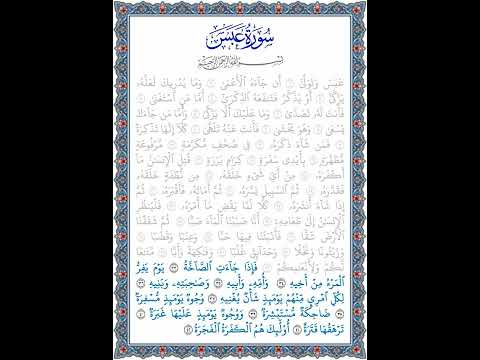 سُورَةُ عَبَسَ
بِسْمِ اللَّهِ الرَّحْمَٰنِ الرَّحِيمِ
عَبَسَ وَتَوَلَّىٰٓ ١ أَن جَآءَهُ ٱلْأَعْمَىٰ ٢ وَمَا يُدْرِيكَ لَعَلَّهُۥ
يَزَّكَّىٰٓ ٣ أَوْ يَذَّكَّرُ فَتَنفَعَهُ ٱلذِّكْرَىٰٓ ٤ أَمَّا مَنِ ٱسْتَغْنَىٰ ٥
فَأَنتَ لَهُۥ تَصَدَّىٰ ٦ وَمَا عَلَيْكَ أَلَّا يَزَّكَّىٰ ٧ وَأَمَّا مَن جَآءَكَ
يَسْعَىٰ ٨ وَهُوَ يَخْشَىٰ ٩ فَأَنتَ عَنْهُ تَلَهَّىٰ ١٠ كَلَّآ إِنَّهَا تَذْكِرَةٌ ١١
فَمَن شَآءَ ذَكَرَهُۥ ١٢ فِى صُحُفٍ مُّكَرَّمَةٍ ١٣ مَّرْفُوعَةٍ
مُّطَهَّرَةٍۭ ١٤ بِأَيْدِى سَفَرَةٍ ١٥ كِرَامٍۭ بَرَرَةٍ ١٦ قُتِلَ ٱلْإِنسَٰنُ مَآ
أَكْفَرَهُۥ ١٧ مِنْ أَىِّ شَىْءٍ خَلَقَهُۥ ١٨ مِن نُّطْفَةٍ خَلَقَهُۥ
فَقَدَّرَهُۥ ١٩ ثُمَّ ٱلسَّبِيلَ يَسَّرَهُۥ ٢٠ ثُمَّ أَمَاتَهُۥ فَأَقْبَرَهُۥ ٢١ ثُمَّ
إِذَا شَآءَ أَنشَرَهُۥ ٢٢ كَلَّا لَمَّا يَقْضِ مَآ أَمَرَهُۥ ٢٣ فَلْيَنظُرِ
ٱلْإِنسَٰنُ إِلَىٰ طَعَامِهِۦٓ ٢٤ أَنَّا صَبَبْنَا ٱلْمَآءَ صَبًّا ٢٥ ثُمَّ شَقَقْنَا
ٱلْأَرْضَ شَقًّا ٢٦ فَأَنۢبَتْنَا فِيهَا حَبًّا ٢٧ وَعِنَبًا وَقَضْبًا ٢٨
وَزَيْتُونًا وَنَخْلًا ٢٩ وَحَدَآئِقَ غُلْبًا ٣٠ وَفَٰكِهَةً وَأَبًّا ٣١ مَّتَٰعًا
لَّكُمْ وَلِأَنْعَٰمِكُمْ ٣٢ فَإِذَا جَآءَتِ ٱلصَّآخَّةُ ٣٣ يَوْمَ يَفِرُّ
ٱلْمَرْءُ مِنْ أَخِيهِ ٣٤ وَأُمِّهِۦ وَأَبِيهِ ٣٥ وَصَٰحِبَتِهِۦ وَبَنِيهِ ٣٦
لِكُلِّ ٱمْرِئٍ مِّنْهُمْ يَوْمَئِذٍ شَأْنٌ يُغْنِيهِ ٣٧ وُجُوهٌ يَوْمَئِذٍ مُّسْفِرَةٌ ٣٨
ضَاحِكَةٌ مُّسْتَبْشِرَةٌ ٣٩ وَوُجُوهٌ يَوْمَئِذٍ عَلَيْهَا غَبَرَةٌ ٤٠
تَرْهَقُهَا قَتَرَةٌ ٤١ أُو۟لَٰٓئِكَ هُمُ ٱلْكَفَرَةُ ٱلْفَجَرَةُ ٤٢